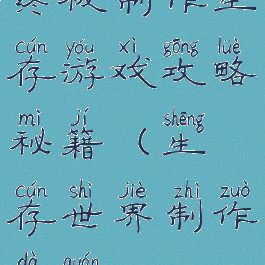 终极制作生
cún yóu xì gōng lüè
存游戏攻略
mì jí shēng
秘籍（生
cún shì jiè zhì zuò
存世界制作
dà quán